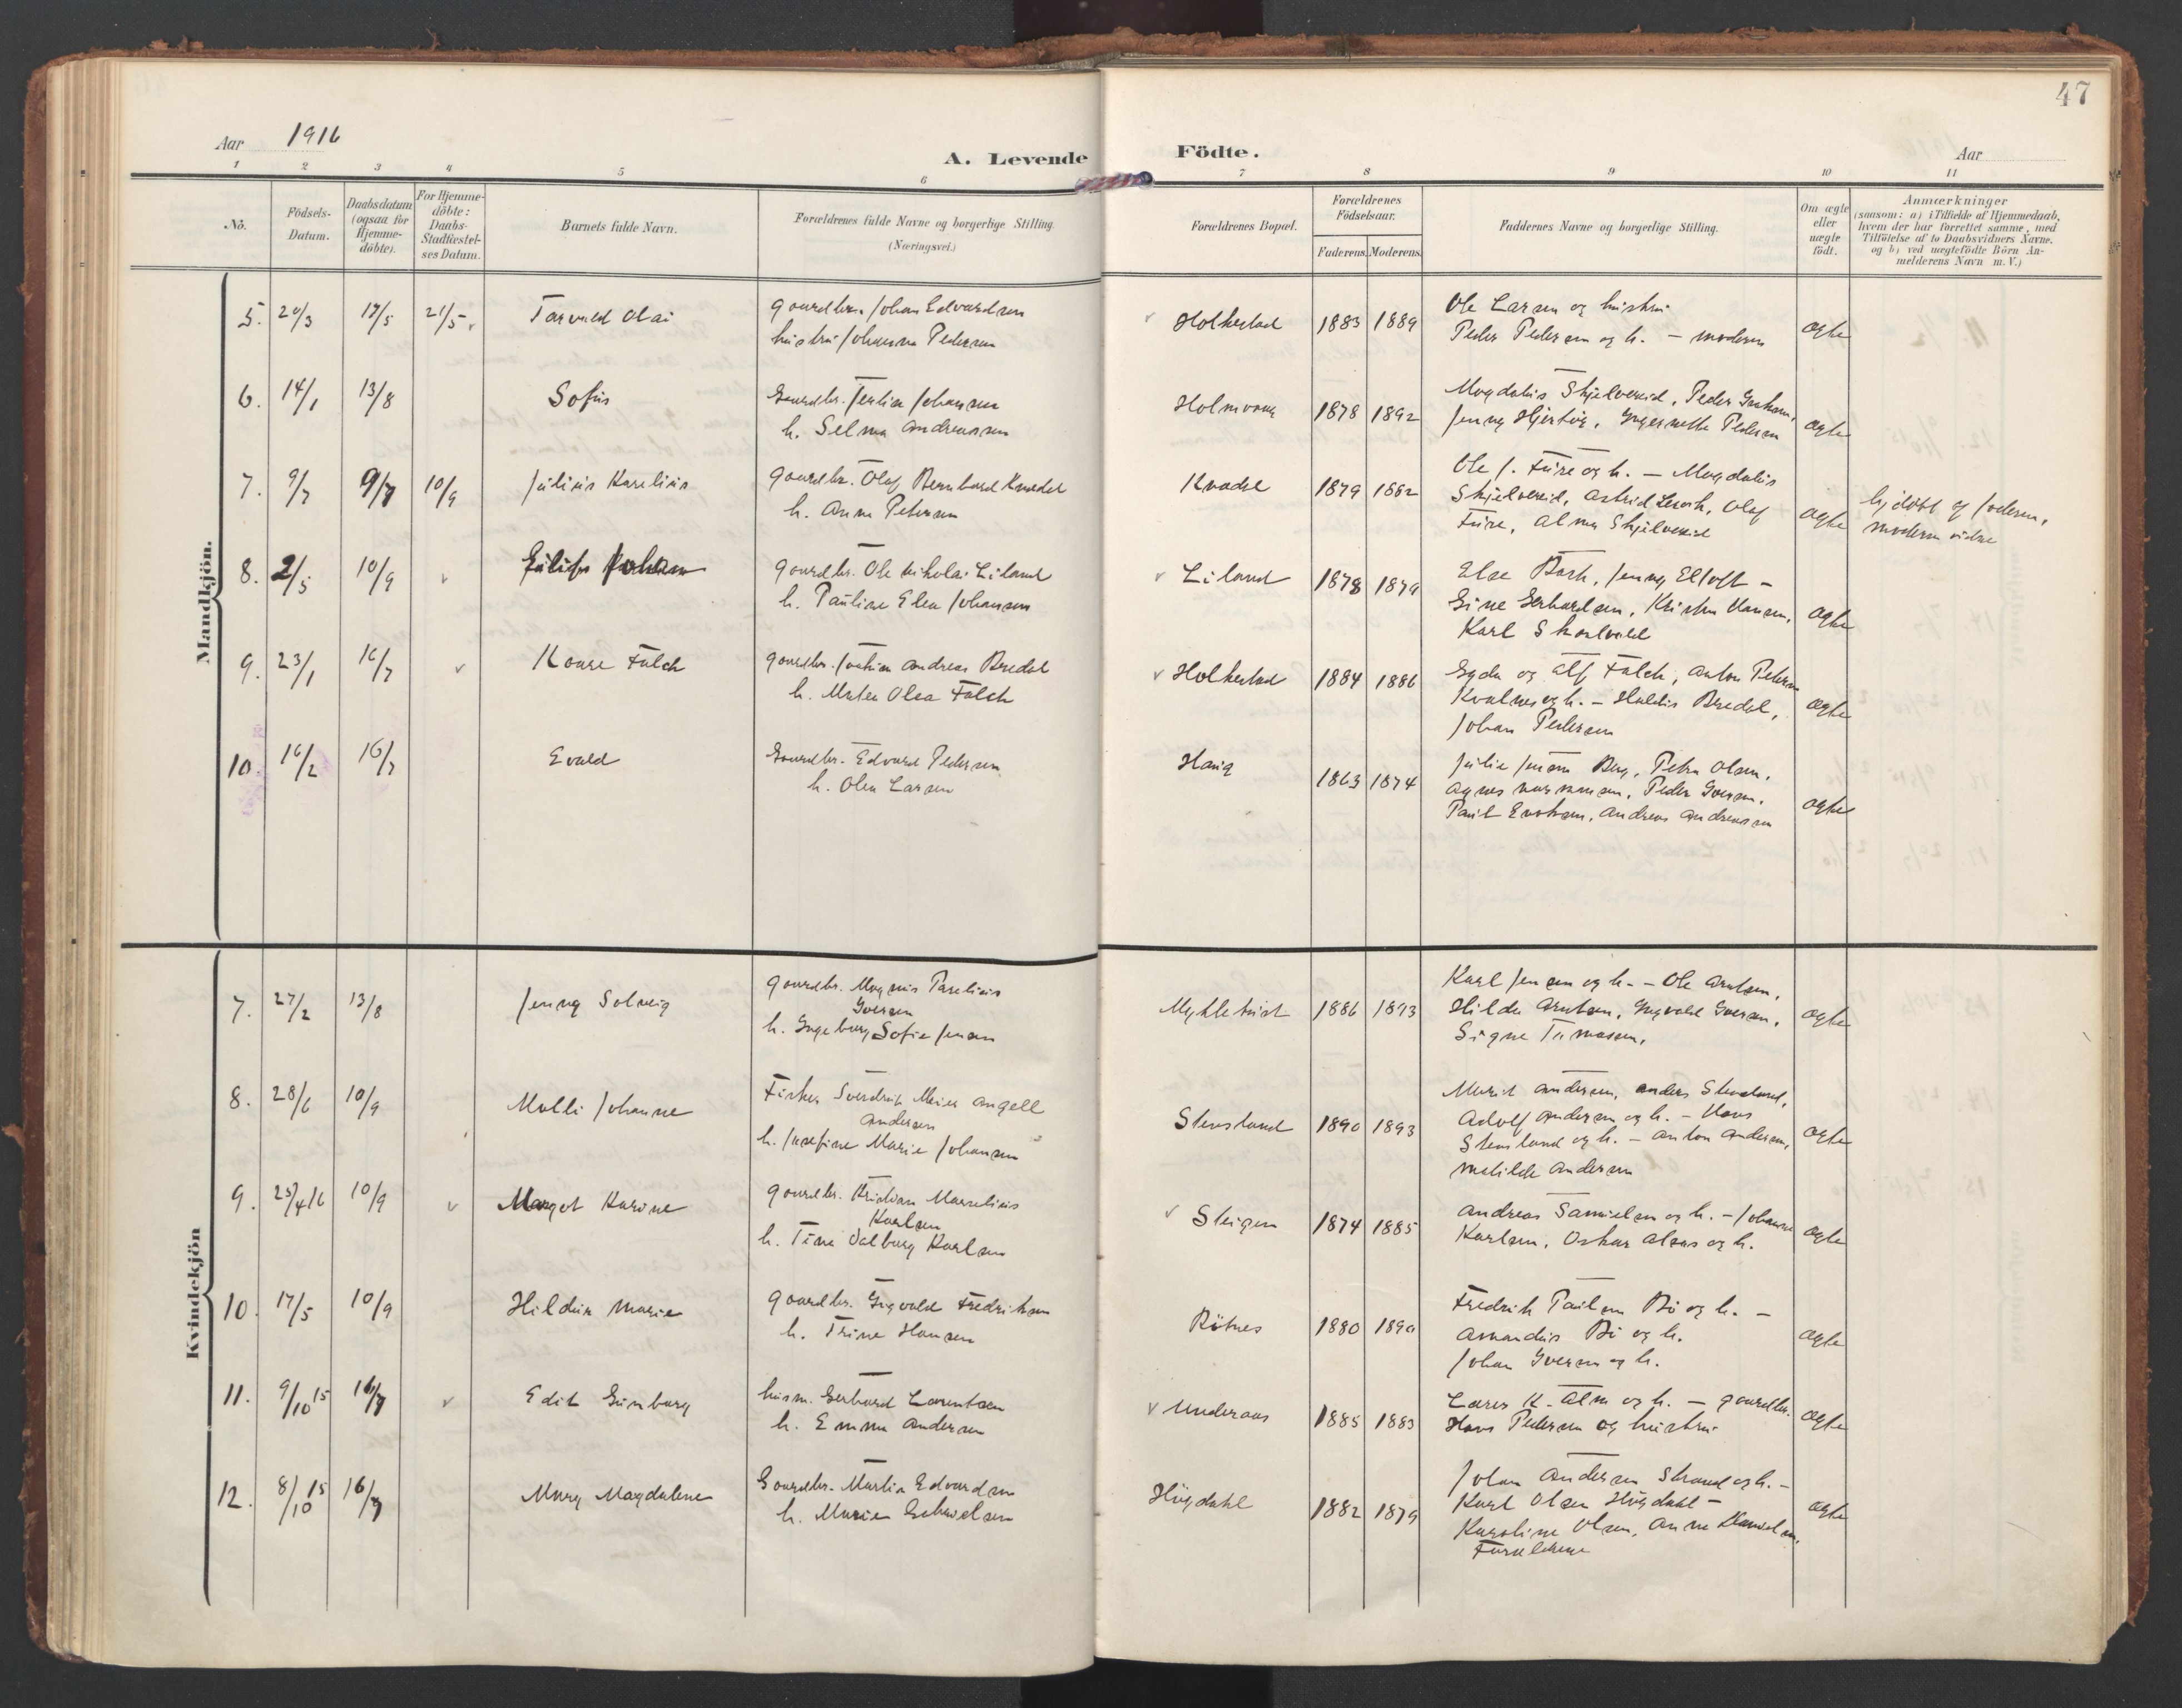 47
Aar 1916
A. Levende Födte.
Aar
1 2 3 4 5 6 7 8 9 10 11
No.
Födsels-Datum.
Daabsdatum (ogsaa for Hjemme-döbte).
For Hjemme-döbte: Daabs-Stadfæstel-ses Datum.
Barnets fulde Navn.
Forældrenes fulde Navne og borgerlige Stilling. (Næringsvei.)
Forældrenes Bopæl.
Forældrenes Födselsaar.
Faderens. Moderens.
Faddernes Navne og borgerlige Stilling.
Om ægte eller uægte födt.
Anmærkninger
(saasom: a) i Tilfælde af Hjemmedaab,
hvem der har forrettet samme, med
Tilföielse af to Daabsvidners Navne.
og b) ved uægtefödte Börn An-
melderens Navn m. V.)
Mandkjön.
5. 20/3 17/5 21/5 Torvald Olai
gaardbr. Johan Edvardsen
hustru Johanna Pedersen
Holkestad 1883 1889
Ole Larsen og hustru
Peder Pedersen og h. – moderen
ægte
6. 14/1 13/8 Sofus
Gaardbr. Johansen
h. Selma Andreassen
Holmvaag 1878 1892
Magdalus Skjelvereid, Peder
Jenny Hjertöe, Pedersen
ægte
7. 9/7 9/7 10/9 Julius Karelius
gaardbr. Olaf Bernhard Kvadal
h. Anna Petersen
Kvadal 1879 1882
Ole J. Fure og h. – Magdalus
Skjelvereid, Astrid, Olaf
Fure, Alma Skjelvereid
ægte
hj.döbt af faderen,
moderen vidne
8. 2/5 10/9 Johan
gaardbr. Ole Nikolai Liland
h. Pauline Elea Johansen
Liland 1878 1879
Else Bach, Jenny Eltoft –
Gine Gerhardsen, Kristen Hansen,
Karl
ægte
9. 23/1 16/7 Kaare Falch
gaardbr. Joakim Andreas Bredal
h. Olea Falch
Holkestad 1884 1886
Egda og Alf Falch, Anton Petersen
Kvalnes og h. – Bredal,
Johan Pedersen
ægte
10. 16/2 16/7 Evald
Gaardbr. Edvard Pedersen
h. Olea Larsen
Haug 1863 1874
Julie Jensen Berg, Petra Olsen,
Agnes, Peder Iversen,
Paul, Andreas Andreassen
ægte
Kvindekjön
7. 27/2 13/8 Jenny Solveig
gaardbr. Magnus Parelius
Iversen
h. Ingeborg Sofie Jensen
Myklebust 1886 1893
Karl Jensen og h. – Ole Arntsen,
Hilda Arntsen, Ingvald Iversen,
Signe Tomassen.
ægte
8. 28/6 10/9 Malli Johanne
Fisker Sverdrup Meier Angell
Andersen
h. Josefine Marie Johansen
Stensland 1890 1893
Marit Andersen, Anders Stensland,
Adolf Andersen og h. – Hans
Stensland og h. – Anton Andersen,
Matilde Andersen
ægte
9. 25/4 16 10/9 Margot Karine
gaardbr. Kristian Marselius
Karlsen
h. Tina Valborg Karlsen
Steigen 1874 1885
Andreas Samuelsen og h. – Johanne
Karlsen, Oskar og h.
ægte
10. 17/5 10/9 Hildur Marie
gaardbr. Sigvald Fredriksen
h. Trine Hansen
Bötnes 1880 1890
Fredrik Paulsen Bö og h. –
Amandus Bö og h.
Johan Iversen og h.
ægte
11. 9/10 15 16/7 Edit Gunborg
husm. Gerhard Lorentsen
h. Emma Andersen
Underaas 1885 1883
Lars K. Alm og h. – gaardbr.
Hans Pedersen og hustru
ægte
12. 8/10 15 16/7 Mary Magdalene
Gaardbr. Martin Edvardsen
h. Marie
Högdahl 1882 1879
Johan Andersen Strand og h. –
Karl Olsen Högdahl –
Karoline Olsen, Anne Danielsen,
Forældrene
ægte